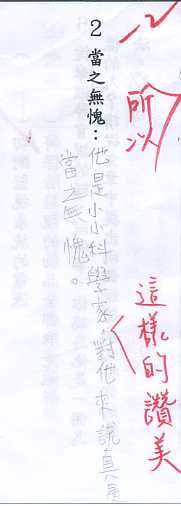 2 當之無愧：他是小小科學家，對他來說真是
當之無愧。
-2
所以
這樣的讚美